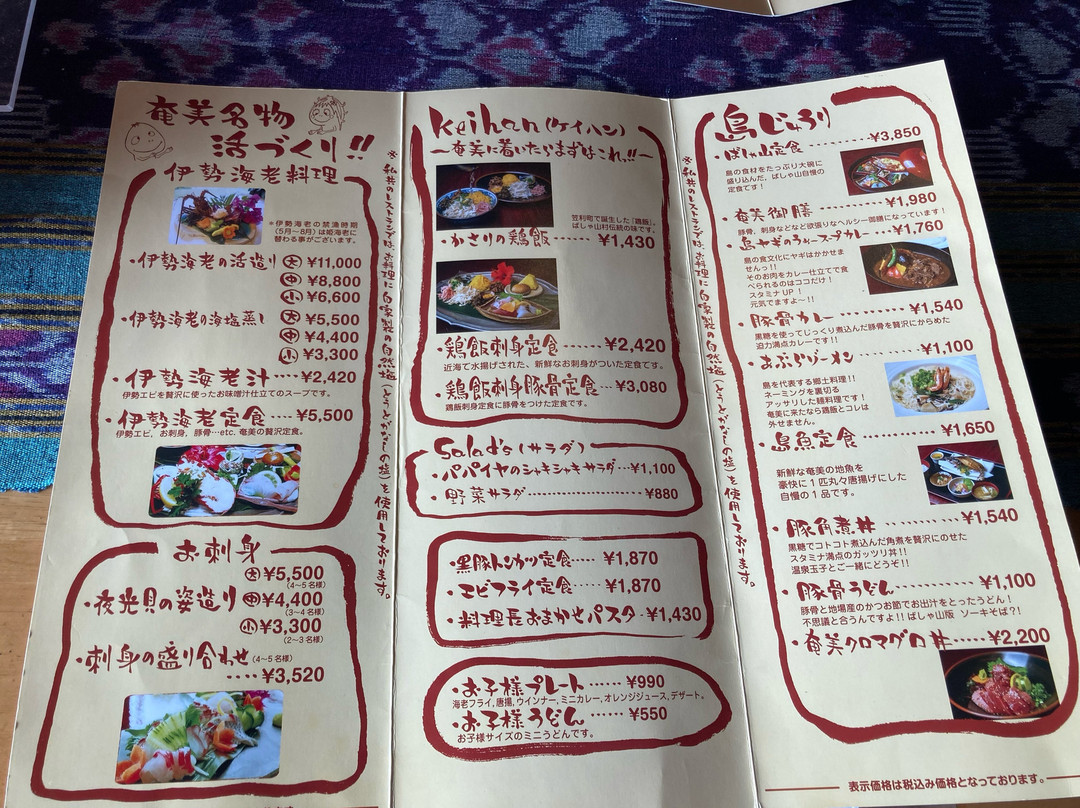 奄美名物
活づくり!!
伊勢海老料理
＊伊勢海老の禁漁時期
(5月～8月)は姫海老に
替わる事がございます。
・伊勢海老の活造り 大 ¥11,000
中 ¥8,800
小 ¥6,600
・伊勢海老の海塩蒸し 大 ¥5,500
中 ¥4,400
小 ¥3,300
・伊勢海老汁･･･¥2,420
伊勢エビを贅沢に使ったお味噌汁仕立てのスープです。
・伊勢海老定食････¥5,500
伊勢エビ、お刺身、豚骨…etc. 奄美の贅沢定食。
お刺身
・夜光貝の姿造り 大 ¥5,500
(4～5名様)
中 ¥4,400
(3～4名様)
小 ¥3,300
(2～3名様)
・刺身の盛り合わせ (4～5名様)
････¥3,520
※私共のレストランでは、お料理に自家製の自然塩(とうとがなしの塩)を使用しております。
Keihan(ケイハン)
～奄美に着いたらまずはこれ!!～
笠利町で誕生した「鶏飯」
ばしゃ山村伝統の味です。
・かさりの鶏飯･･･¥1,430
・鶏飯刺身定食･････¥2,420
近海で水揚げされた、新鮮なお刺身がついた定食です。
・鶏飯刺身豚骨定食･･･¥3,080
鶏飯刺身定食に豚骨をつけた定食です。
Salad's(サラダ)
・パパイヤのシャキシャキサラダ･･･¥1,100
・野菜サラダ･････････････¥880
・黒豚トンカツ定食････¥1,870
・エビフライ定食･････¥1,870
・料理長おまかせパスタ･･¥1,430
・お子様プレート･･････¥990
海老フライ,唐揚,ウインナー,ミニカレー,オレンジジュース,デザート。
・お子様うどん･･････¥550
お子様サイズのミニうどんです。
※私共のレストランでは、お料理に自家製の自然塩(とうとがなしの塩)を使用しております。
島じゅうり
・ばしゃ山定食･･････････¥3,850
島の食材をたっぷり大碗に
盛り込んだ、ばしゃ山自慢の
定食です!
・奄美御膳･･････････¥1,980
豚骨、刺身などなど欲張りなヘルシー御膳になっています!
・島ヤギのラィースープカレー･･･¥1,760
島の食文化にヤギはかかせま
せんっ!!
そのお肉をカレー仕立てで食
べられるのはココだけ!
スタミナUP!
元気でますよ～!!
・豚骨カレー･･････････¥1,540
黒糖を使ってじっくり煮込んだ豚骨を贅沢にからめた
迫力満点カレーです!!
・あぶらゾーメン･･････¥1,100
島を代表する郷土料理!!
ネーミングを裏切る
アッサリした麺料理です!
奄美に来たなら鶏飯とコレは
外せません。
・島魚定食･･････････¥1,650
新鮮な奄美の地魚を
豪快に1匹丸々唐揚げにした
自慢の1品です。
・豚角煮丼･･････････¥1,540
黒糖でコトコト煮込んだ角煮を贅沢にのせた
スタミナ満点のガッツリ丼!!
温泉玉子とご一緒にどうぞ!!
・豚骨うどん･･････････¥1,100
豚骨と地場産のかつお節でお出汁をとったうどん!
不思議と合うんですよ!!ばしゃ山版 ソーキそば?!
・奄美クロマグロ丼･････¥2,200
表示価格は税込み価格となっております。